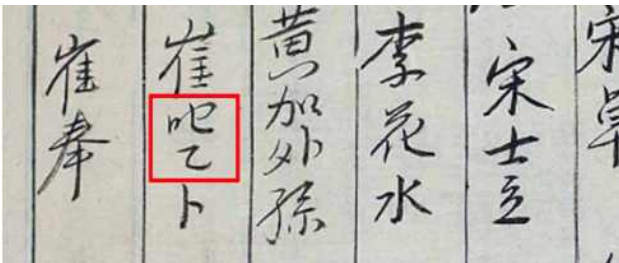 宋士立
李花水
黃加外孫
崔吧乙卜
崔奉